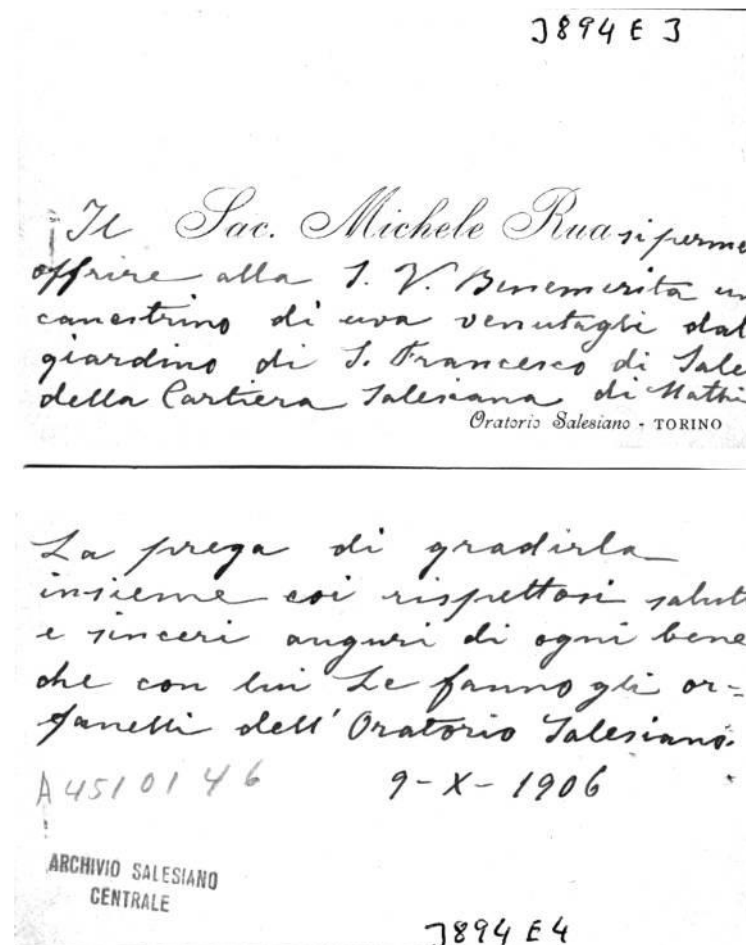 3894 E 3
Il Sac. Michele Rua si perme
offrire alla S. V. Benemerita un
canestrino di uva venutagli dal
giardino di S. Francesco di Sale
della Cartiera Salesiana di Mathi
Oratorio Salesiano - TORINO
La prega di gradirla
insieme coi rispettosi salut
e sinceri auguri di ogni bene
che con lui Le fanno gli or=
fanelli dell' Oratorio Salesiano.
A4510146 9-X-1906
ARCHIVIO SALESIANO
CENTRALE
3894 E4